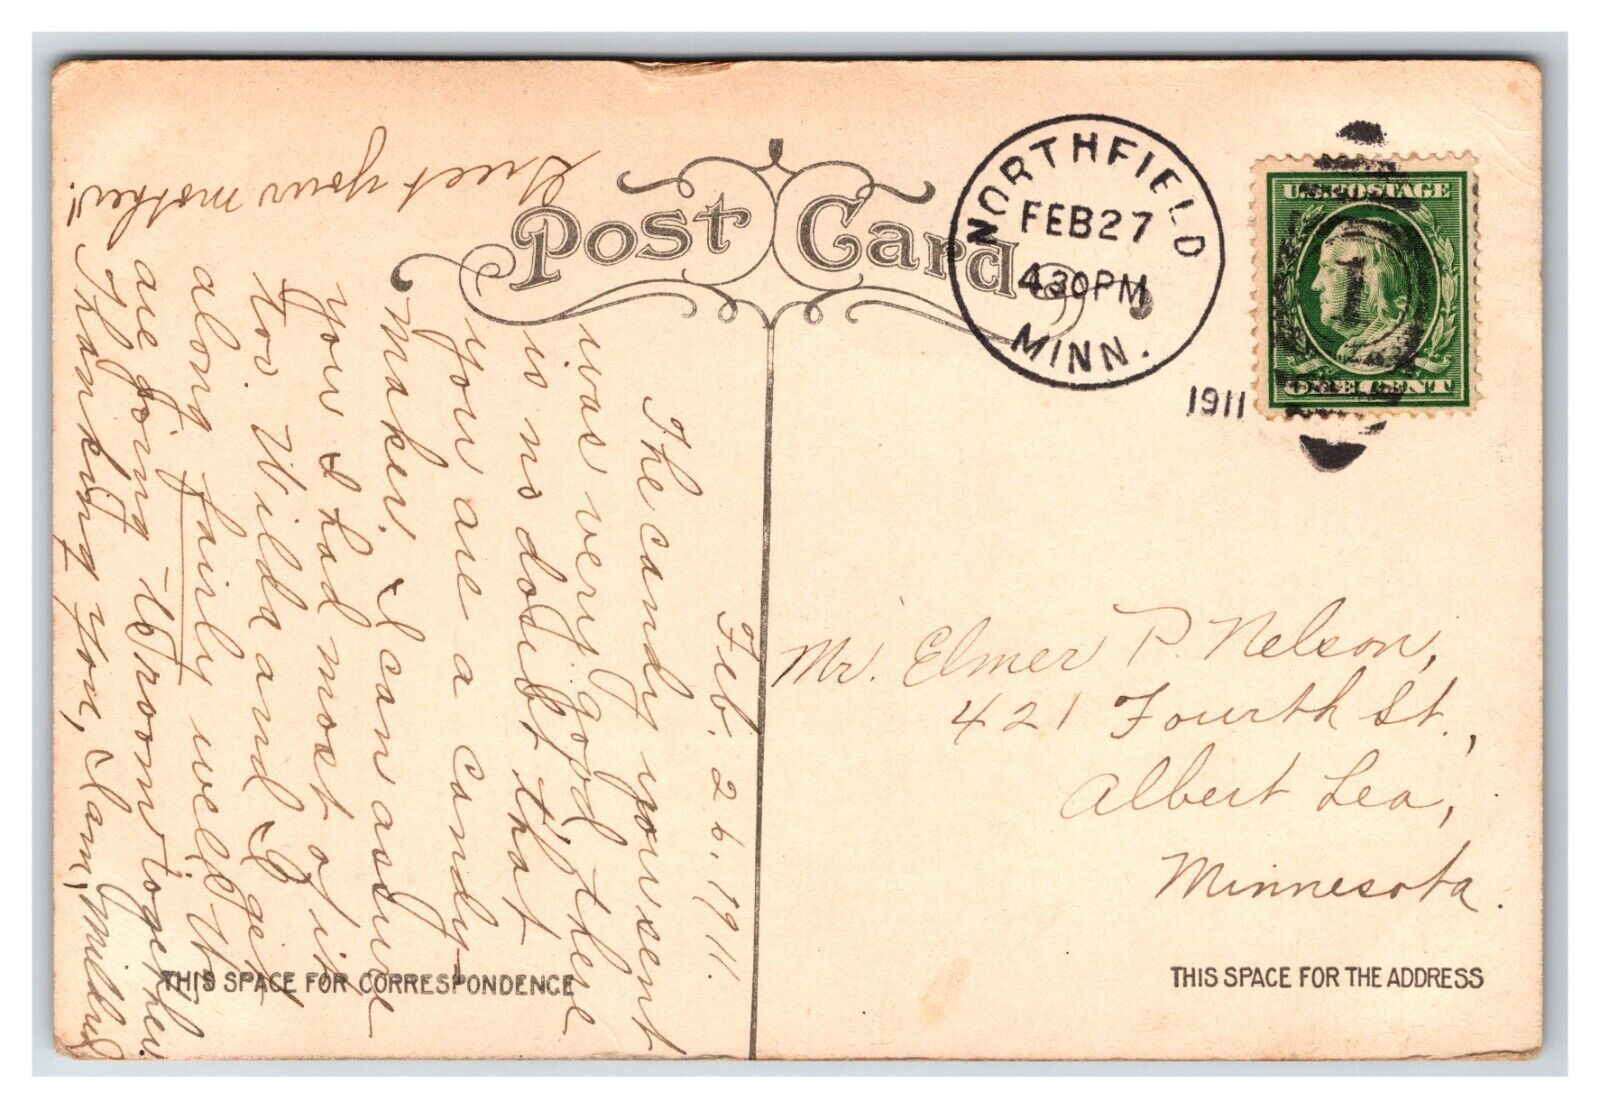 Post Card
NORTHFIELD
FEB 27
430PM
MINN.
1911
U.S. POSTAGE
1
ONE CENT
Feb. 26, 1911.
The candy you sent
was very good there
is no doubt that
you are a candy
maker. I can assure
you I had most of it
too. Wilda and I get
along fairly well. We
are going to room together.
Thanking you, I am, Mildred
Greet your mother!
Mr. Elmer P. Nelson,
421 Fourth St.,
Albert Lea,
Minnesota.
THIS SPACE FOR CORRESPONDENCE
THIS SPACE FOR THE ADDRESS